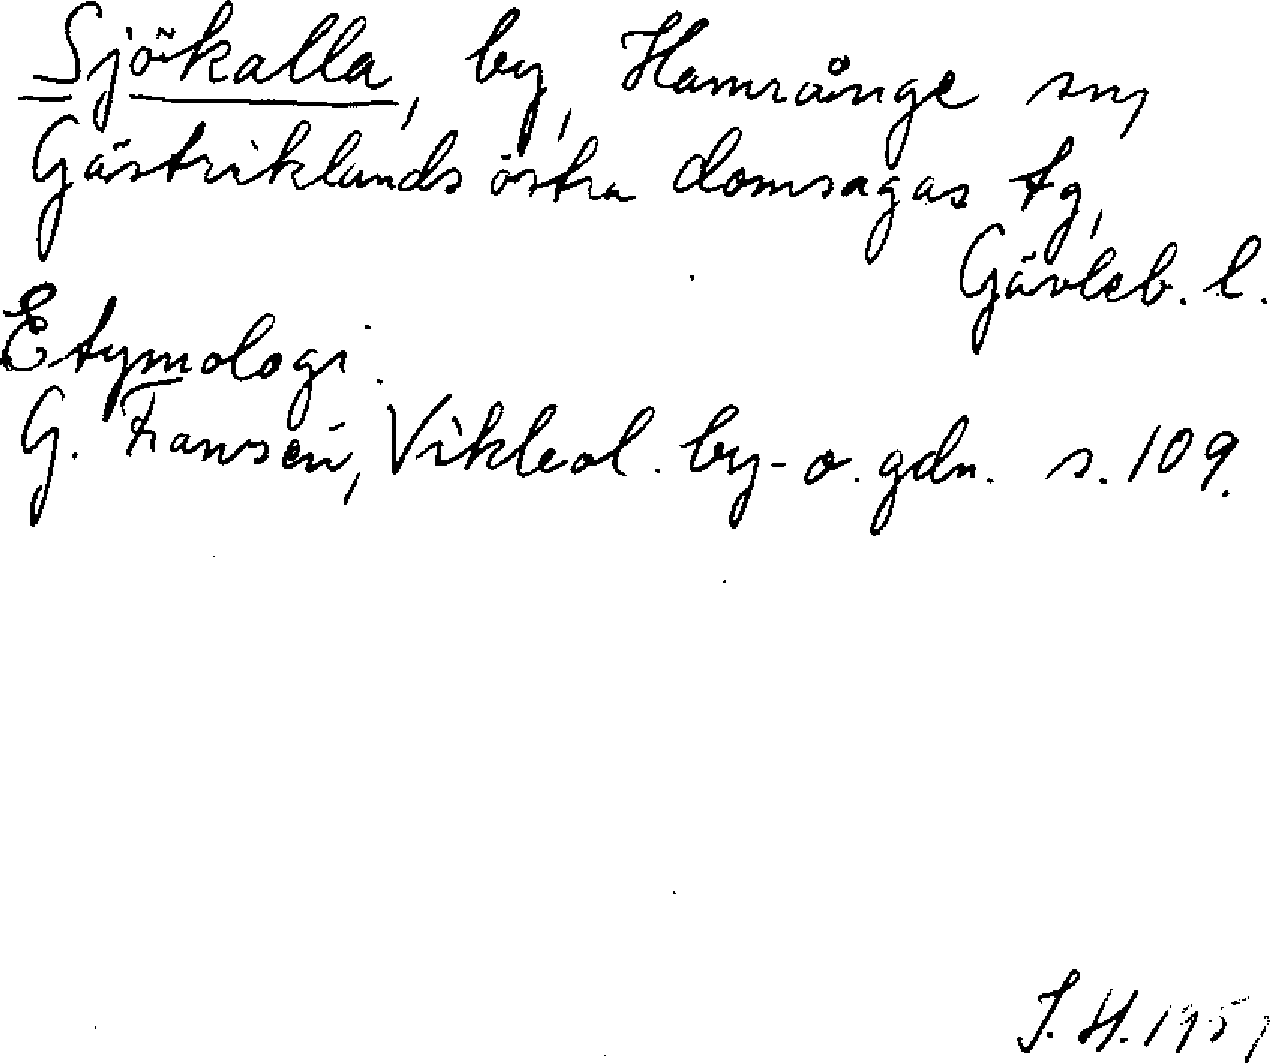 Sjökalla, by, Hamrånge sn,
Gästriklands östra domsagas tg,
Gävleb. l.
Etymologi.
G. Fransén, Vikbol. by- o. gdn. s. 109.
S. H. 1951